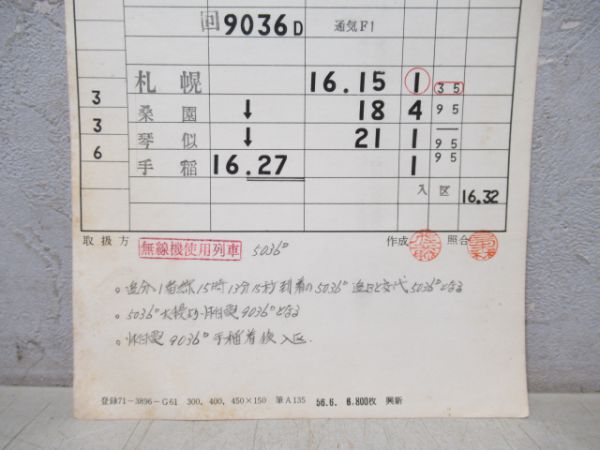 回9036D 通気F1
札幌 16.15 1 35
3 桑園 ↓ 18 4 95
3 琴似 ↓ 21 1 95
6 手稲 16.27 1 95
入区 16.32
取扱方 無線機使用列車 5036D 作成 照合
。追分1番線15時13分15秒到着の5036D
。5036D札幌より 9036Dとなる
。9036D手稲着後入区.
登録71-3896-G61 300, 400, 450×150 筆A135 56.6. 6.800枚 興新